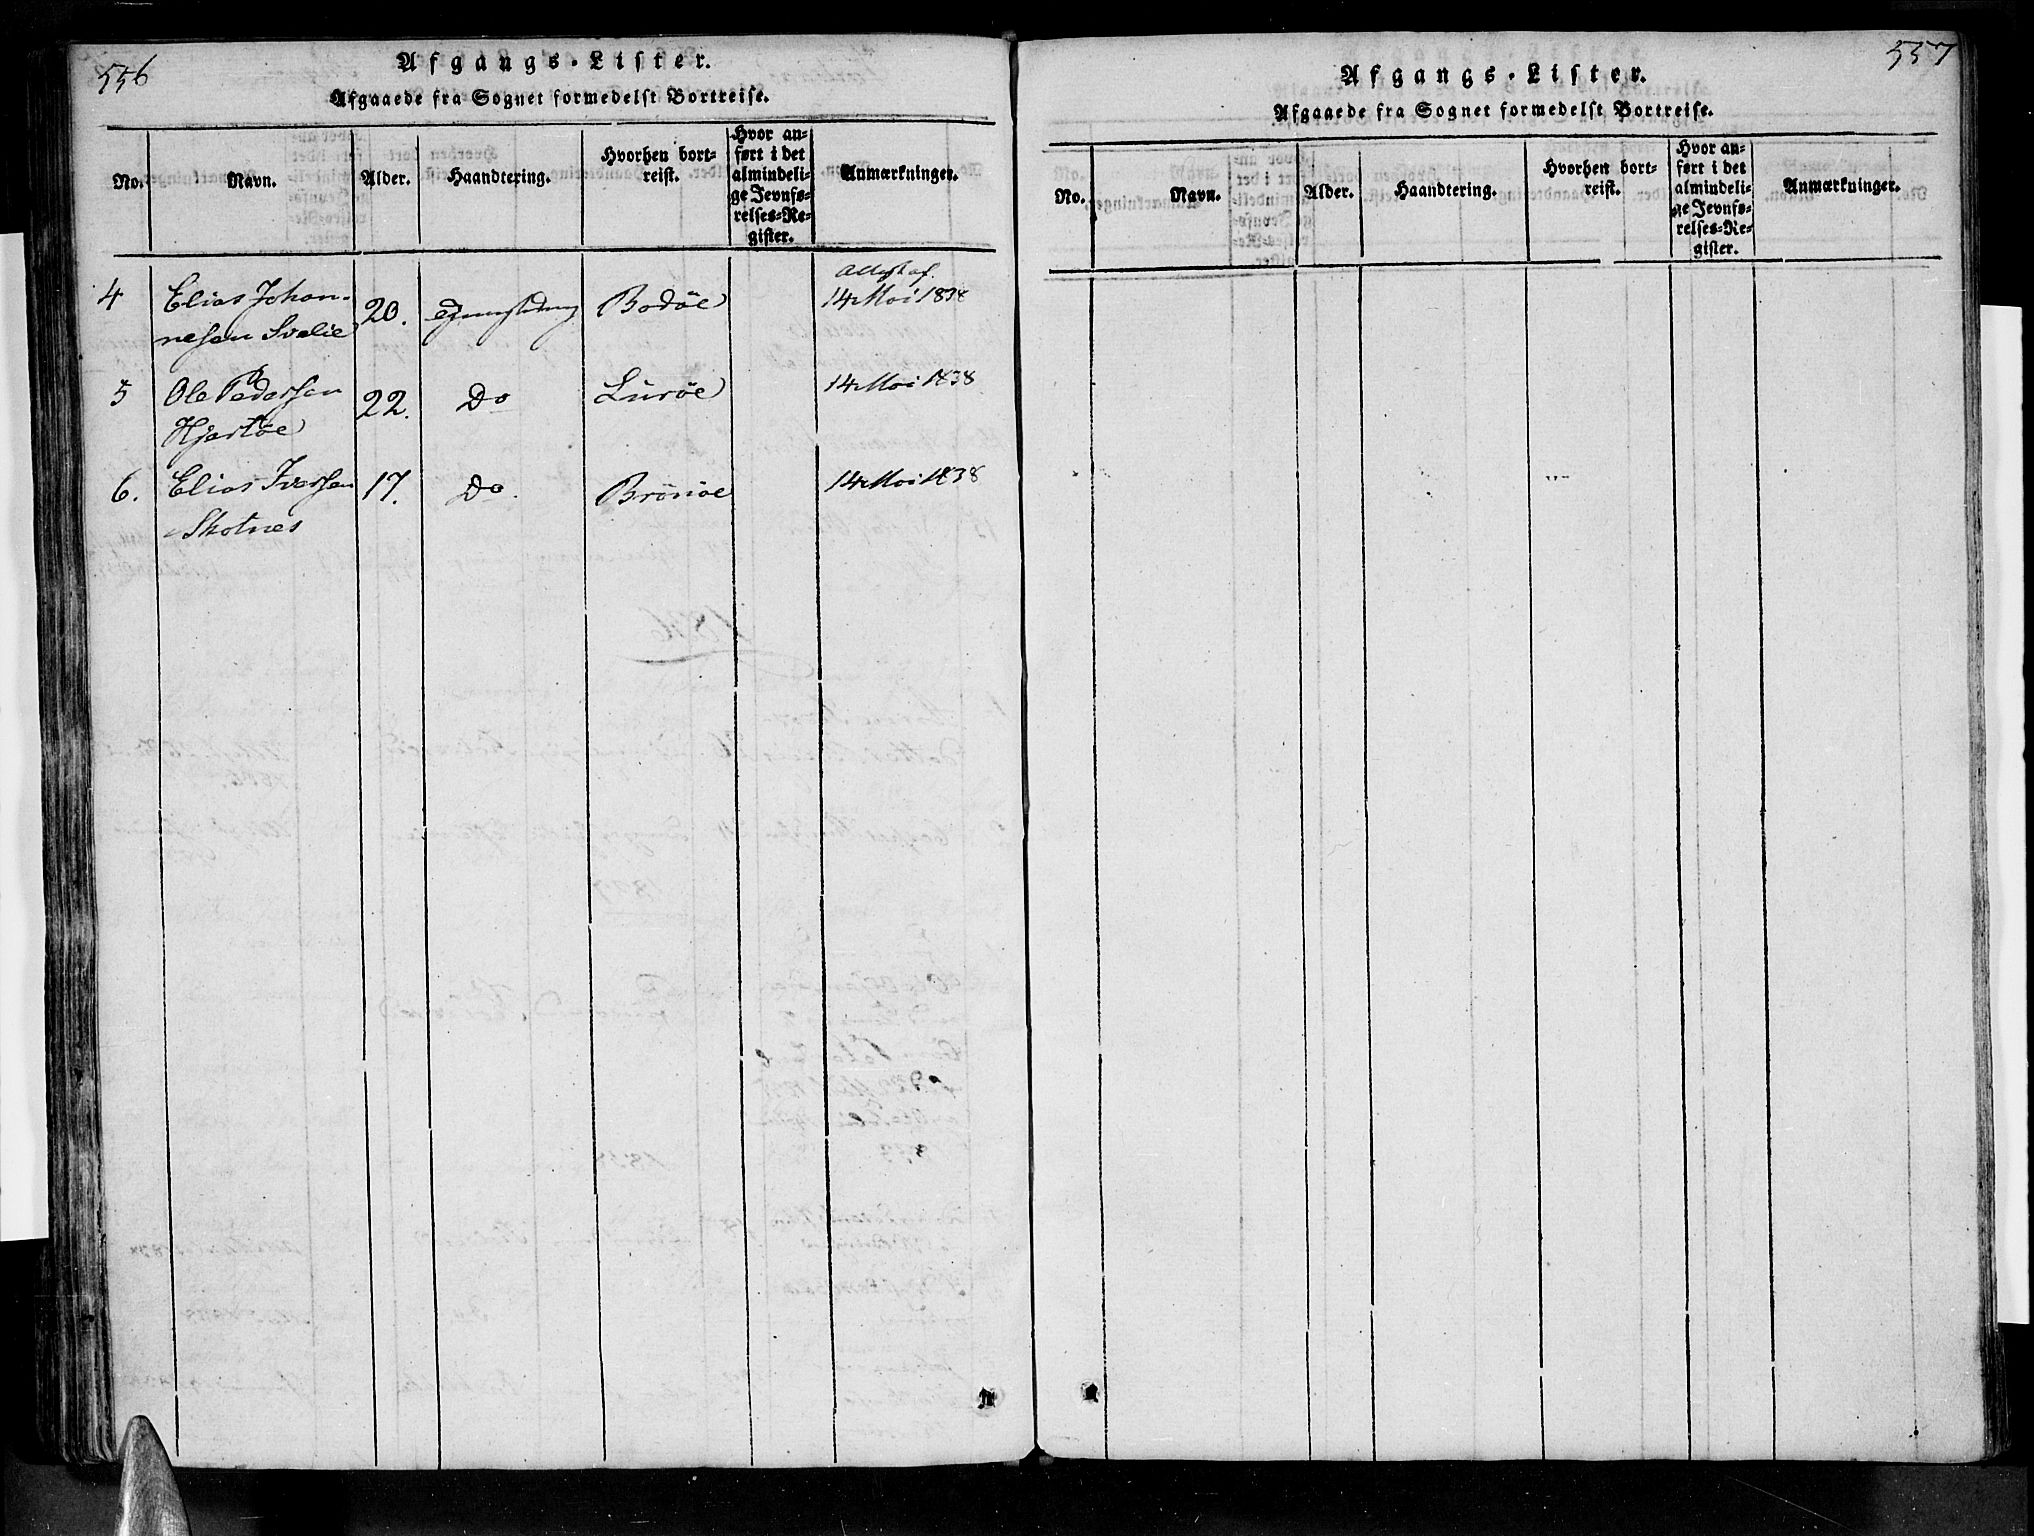 556
Afgangs-Lister.
Afgaaede fra Sognet formedelst Bortreise.
No. Navn. Alder. Haandtering. Hvorhen bortreist. Hvor anført i det almindelige Jevnførelses-Register. Anmærkninger.
Attest af
4 Elias Johan- 20. Bodöe 14 Mai 1838
nesen Svalie
5 Ole Pedersen 22. Do Luröe 14 Mai 1838
Hjartöe
6. Elias Iversen 17. Do. Brönöe 14 Mai 1838
Skotnes
557
Afgangs-Lister.
Afgaaede fra Sognet formedelst Bortreise.
No. Navn. Alder. Haandtering. Hvorhen bortreist. Hvor anført i det almindelige Jevnførelses-Register. Anmærkninger.